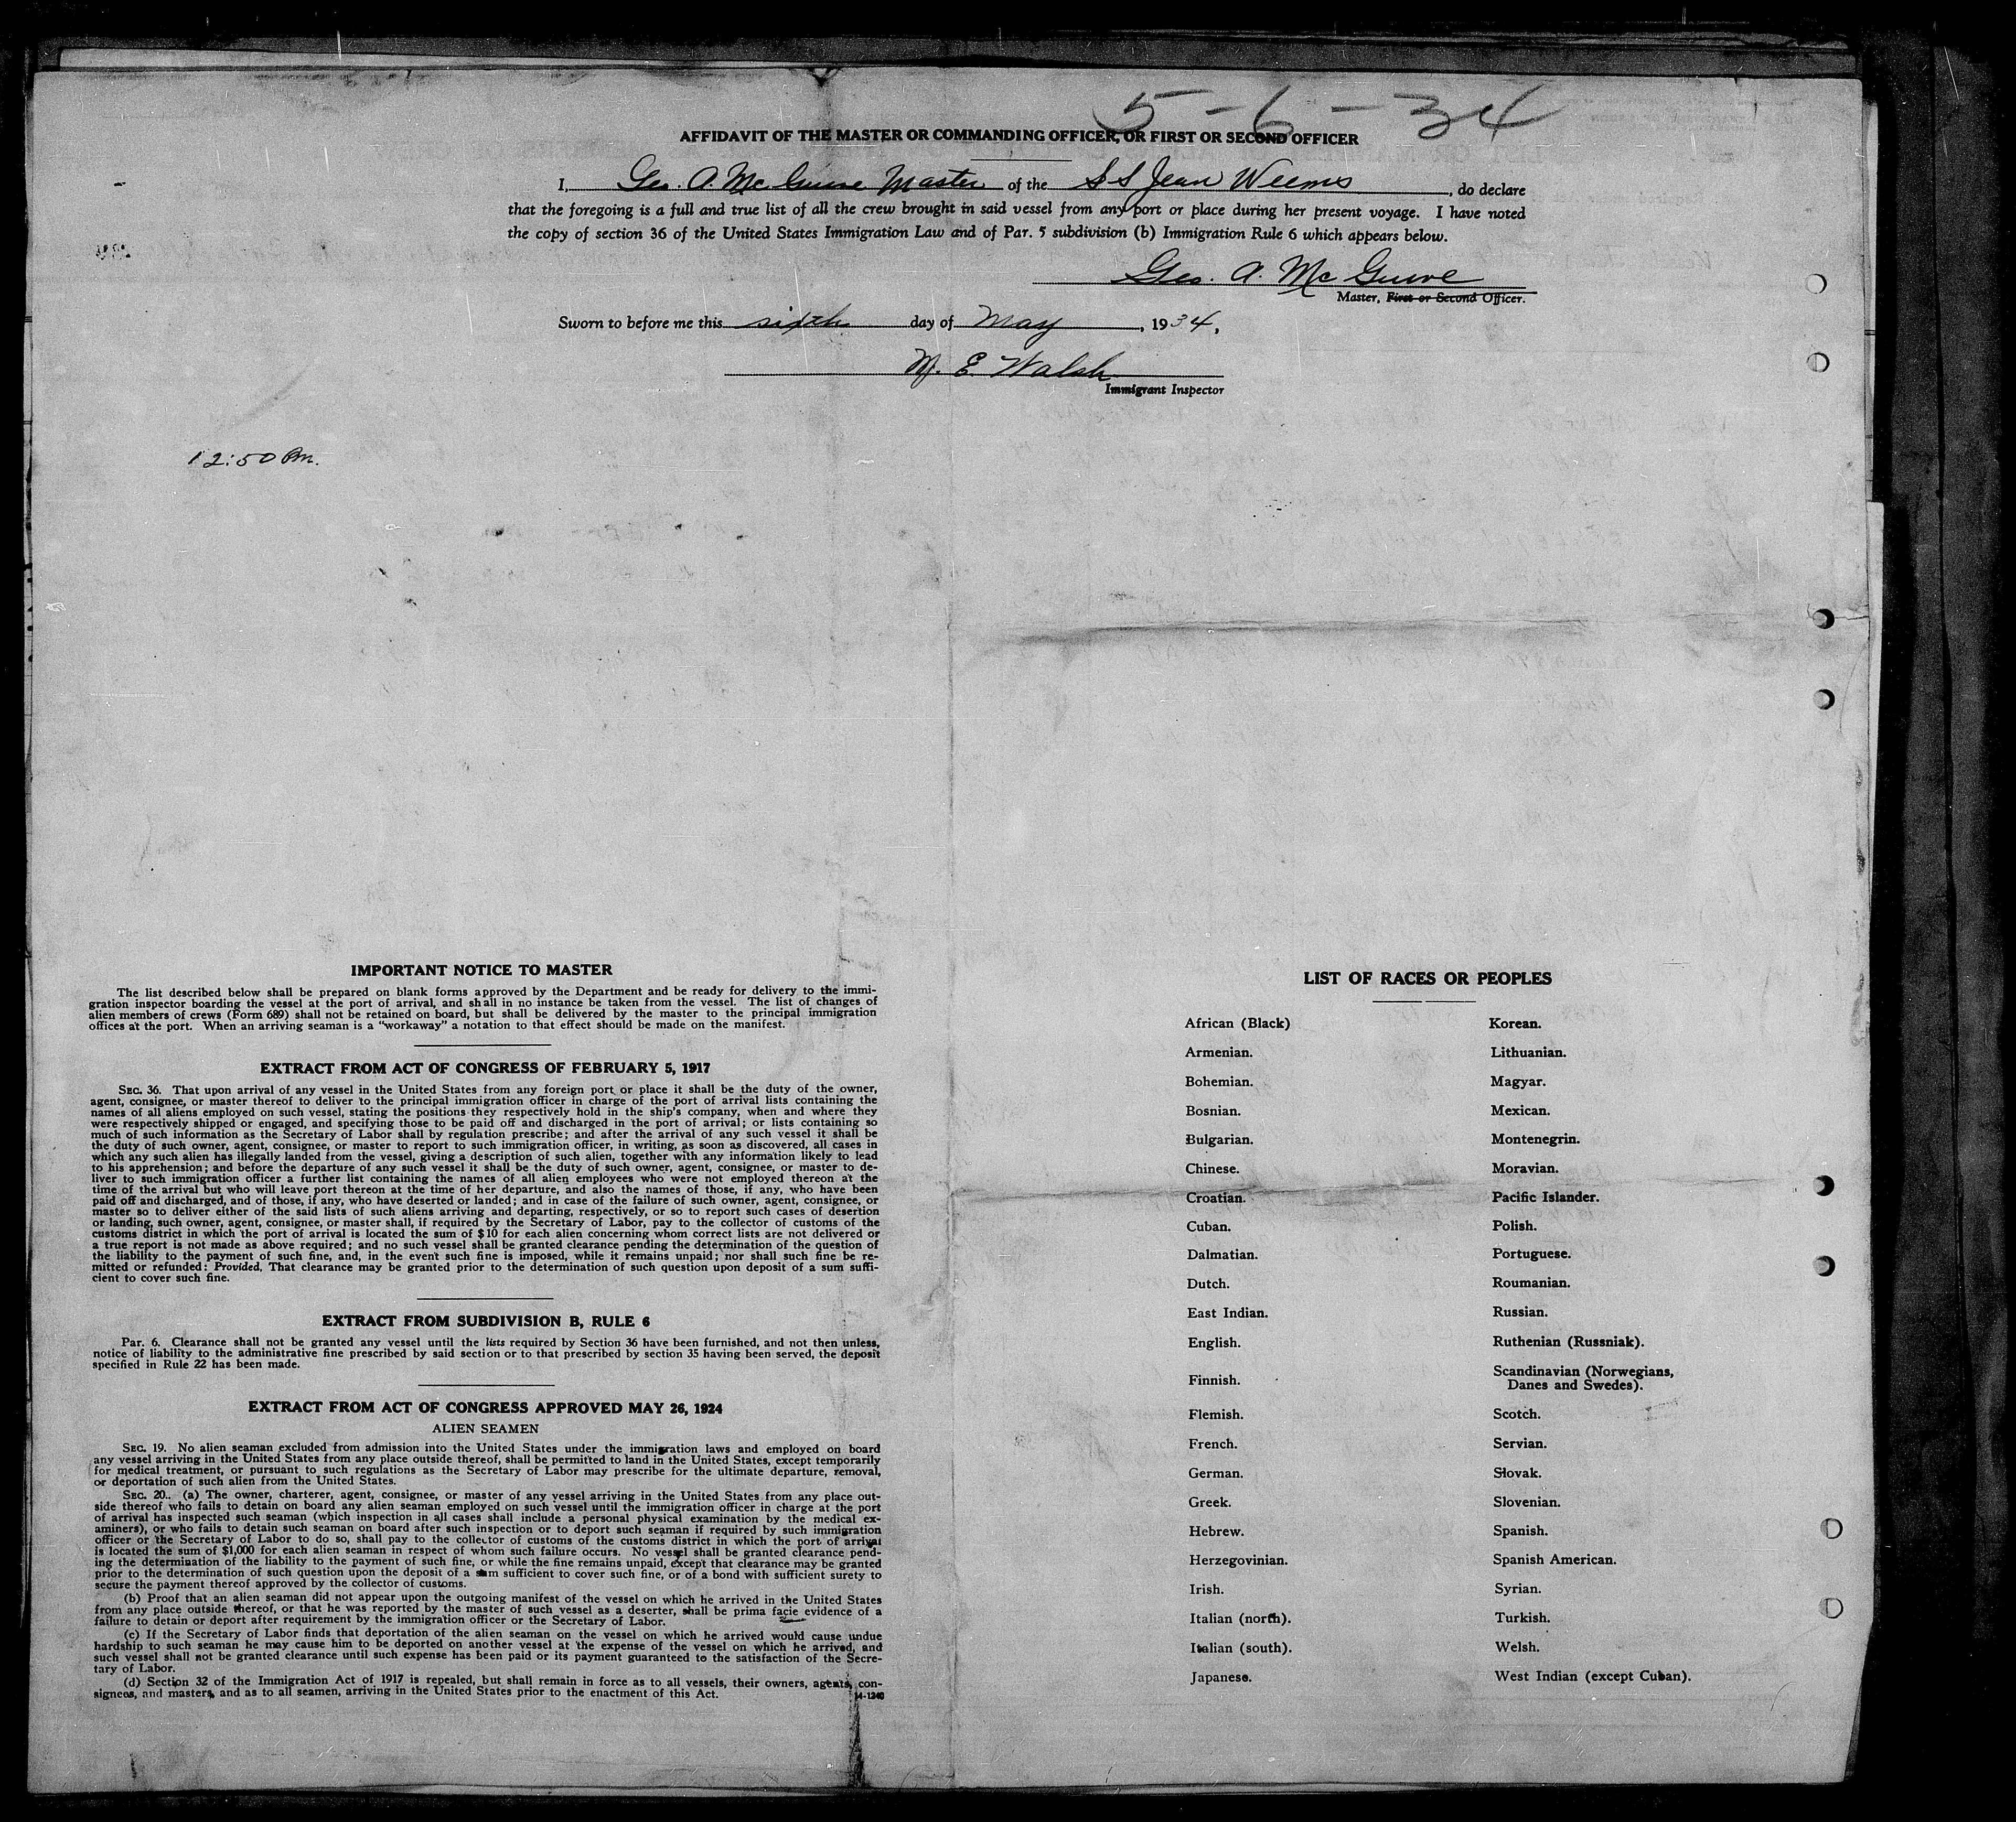 5-6-34
AFFIDAVIT OF THE MASTER OR COMMANDING OFFICER, OR FIRST OR SECOND OFFICER
I, Geo. A. McGuire Master of the SS Jean Weems, do declare
that the foregoing is a full and true list of all the crew brought in said vessel from any port or place during her present voyage. I have noted
the copy of section 36 of the United States Immigration Law and of Par. 5 subdivision (b) Immigration Rule 6 which appears below.
Geo. A. McGuire
Master, First or Second Officer.
Sworn to before me this sixth day of May, 1934,
M. E. Walsh
Immigrant Inspector
12:50 Pm.
IMPORTANT NOTICE TO MASTER
The list described below shall be prepared on blank forms approved by the Department and be ready for delivery to the immi-
gration inspector boarding the vessel at the port of arrival, and shall in no instance be taken from the vessel. The list of changes of
alien members of crews (Form 689) shall not be retained on board, but shall be delivered by the master to the principal immigration
offices at the port. When an arriving seaman is a "workaway" a notation to that effect should be made on the manifest.
EXTRACT FROM ACT OF CONGRESS OF FEBRUARY 5, 1917
SEC. 36. That upon arrival of any vessel in the United States from any foreign port or place it shall be the duty of the owner,
agent, consignee, or master thereof to deliver to the principal immigration officer in charge of the port of arrival lists containing the
names of all aliens employed on such vessel, stating the positions they respectively hold in the ship's company, when and where they
were respectively shipped or engaged, and specifying those to be paid off and discharged in the port of arrival; or lists containing so
much of such information as the Secretary of Labor shall by regulation prescribe; and after the arrival of any such vessel it shall be
the duty of such owner, agent, consignee, or master to report to such immigration officer, in writing, as soon as discovered, all cases in
which any such alien has illegally landed from the vessel, giving a description of such alien, together with any information likely to lead
to his apprehension; and before the departure of any such vessel it shall be the duty of such owner, agent, consignee, or master to de-
liver to such immigration officer a further list containing the names of all alien employees who were not employed thereon at the
time of the arrival but who will leave port thereon at the time of her departure, and also the names of those, if any, who have been
paid off and discharged, and of those, if any, who have deserted or landed; and in case of the failure of such owner, agent, consignee, or
master so to deliver either of the said lists of such aliens arriving and departing, respectively, or so to report such cases of desertion
or landing, such owner, agent, consignee, or master shall, if required by the Secretary of Labor, pay to the collector of customs of the
customs district in which the port of arrival is located the sum of $10 for each alien concerning whom correct lists are not delivered or
a true report is not made as above required; and no such vessel shall be granted clearance pending the determination of the question of
the liability to the payment of such fine, and, in the event such fine is imposed, while it remains unpaid; nor shall such fine be re-
mitted or refunded: Provided, That clearance may be granted prior to the determination of such question upon deposit of a sum suffi-
cient to cover such fine.
EXTRACT FROM SUBDIVISION B, RULE 6
Par. 6. Clearance shall not be granted any vessel until the lists required by Section 36 have been furnished, and not then unless,
notice of liability to the administrative fine prescribed by said section or to that prescribed by section 35 having been served, the deposit
specified in Rule 22 has been made.
EXTRACT FROM ACT OF CONGRESS APPROVED MAY 26, 1924
ALIEN SEAMEN
SEC. 19. No alien seaman excluded from admission into the United States under the immigration laws and employed on board
any vessel arriving in the United States from any place outside thereof, shall be permitted to land in the United States, except temporarily
for medical treatment, or pursuant to such regulations as the Secretary of Labor may prescribe for the ultimate departure, removal,
or deportation of such alien from the United States.
SEC. 20.. (a) The owner, charterer, agent, consignee, or master of any vessel arriving in the United States from any place out-
side thereof who fails to detain on board any alien seaman employed on such vessel until the immigration officer in charge at the port
of arrival has inspected such seaman (which inspection in all cases shall include a personal physical examination by the medical ex-
aminers), or who fails to detain such seaman on board after such inspection or to deport such seaman if required by such immigration
officer or the Secretary of Labor to do so, shall pay to the collector of customs of the customs district in which the port of arrival
is located the sum of $1,000 for each alien seaman in respect of whom such failure occurs. No vessel shall be granted clearance pend-
ing the determination of the liability to the payment of such fine, or while the fine remains unpaid, except that clearance may be granted
prior to the determination of such question upon the deposit of a sum sufficient to cover such fine, or of a bond with sufficient surety to
secure the payment thereof approved by the collector of customs.
(b) Proof that an alien seaman did not appear upon the outgoing manifest of the vessel on which he arrived in the United States
from any place outside thereof, or that he was reported by the master of such vessel as a deserter, shall be prima facie evidence of a
failure to detain or deport after requirement by the immigration officer or the Secretary of Labor.
(c) If the Secretary of Labor finds that deportation of the alien seaman on the vessel on which he arrived would cause undue
hardship to such seaman he may cause him to be deported on another vessel at the expense of the vessel on which he arrived, and
such vessel shall not be granted clearance until such expense has been paid or its payment guaranteed to the satisfaction of the Secre-
tary of Labor.
(d) Section 32 of the Immigration Act of 1917 is repealed, but shall remain in force as to all vessels, their owners, agents, con-
signees, and masters, and as to all seamen, arriving in the United States prior to the enactment of this Act.
14-1240
LIST OF RACES OR PEOPLES
African (Black)
Armenian.
Bohemian.
Bosnian.
Bulgarian.
Chinese.
Croatian.
Cuban.
Dalmatian.
Dutch.
East Indian.
English.
Finnish.
Flemish.
French.
German.
Greek.
Hebrew.
Herzegovinian.
Irish.
Italian (north).
Italian (south).
Japanese.
Korean.
Lithuanian.
Magyar.
Mexican.
Montenegrin.
Moravian.
Pacific Islander.
Polish.
Portuguese.
Roumanian.
Russian.
Ruthenian (Russniak).
Scandinavian (Norwegians,
Danes and Swedes).
Scotch.
Servian.
Slovak.
Slovenian.
Spanish.
Spanish American.
Syrian.
Turkish.
Welsh.
West Indian (except Cuban).